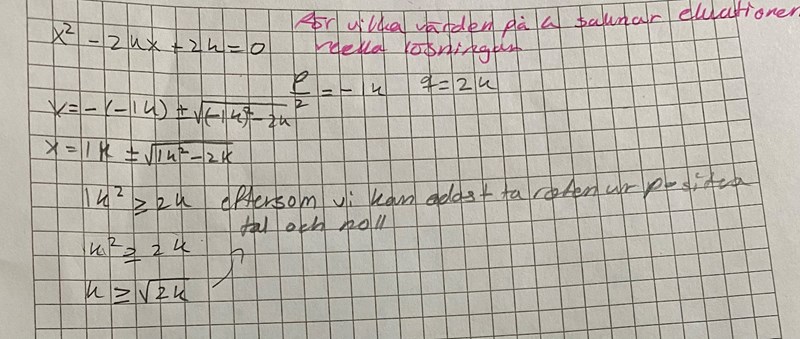 För vilka värden på k saknar ekvationen
reella lösningar
x² - 2kx + 2k = 0
p/2 = -k  q = 2k
x = -(-1k) ± √(-1k)² - 2k
x = 1k ± √1k² - 2k
1k² ≥ 2k eftersom vi kan endast ta roten ur positiva
tal och noll
k² ≥ 2k
k ≥ √2k